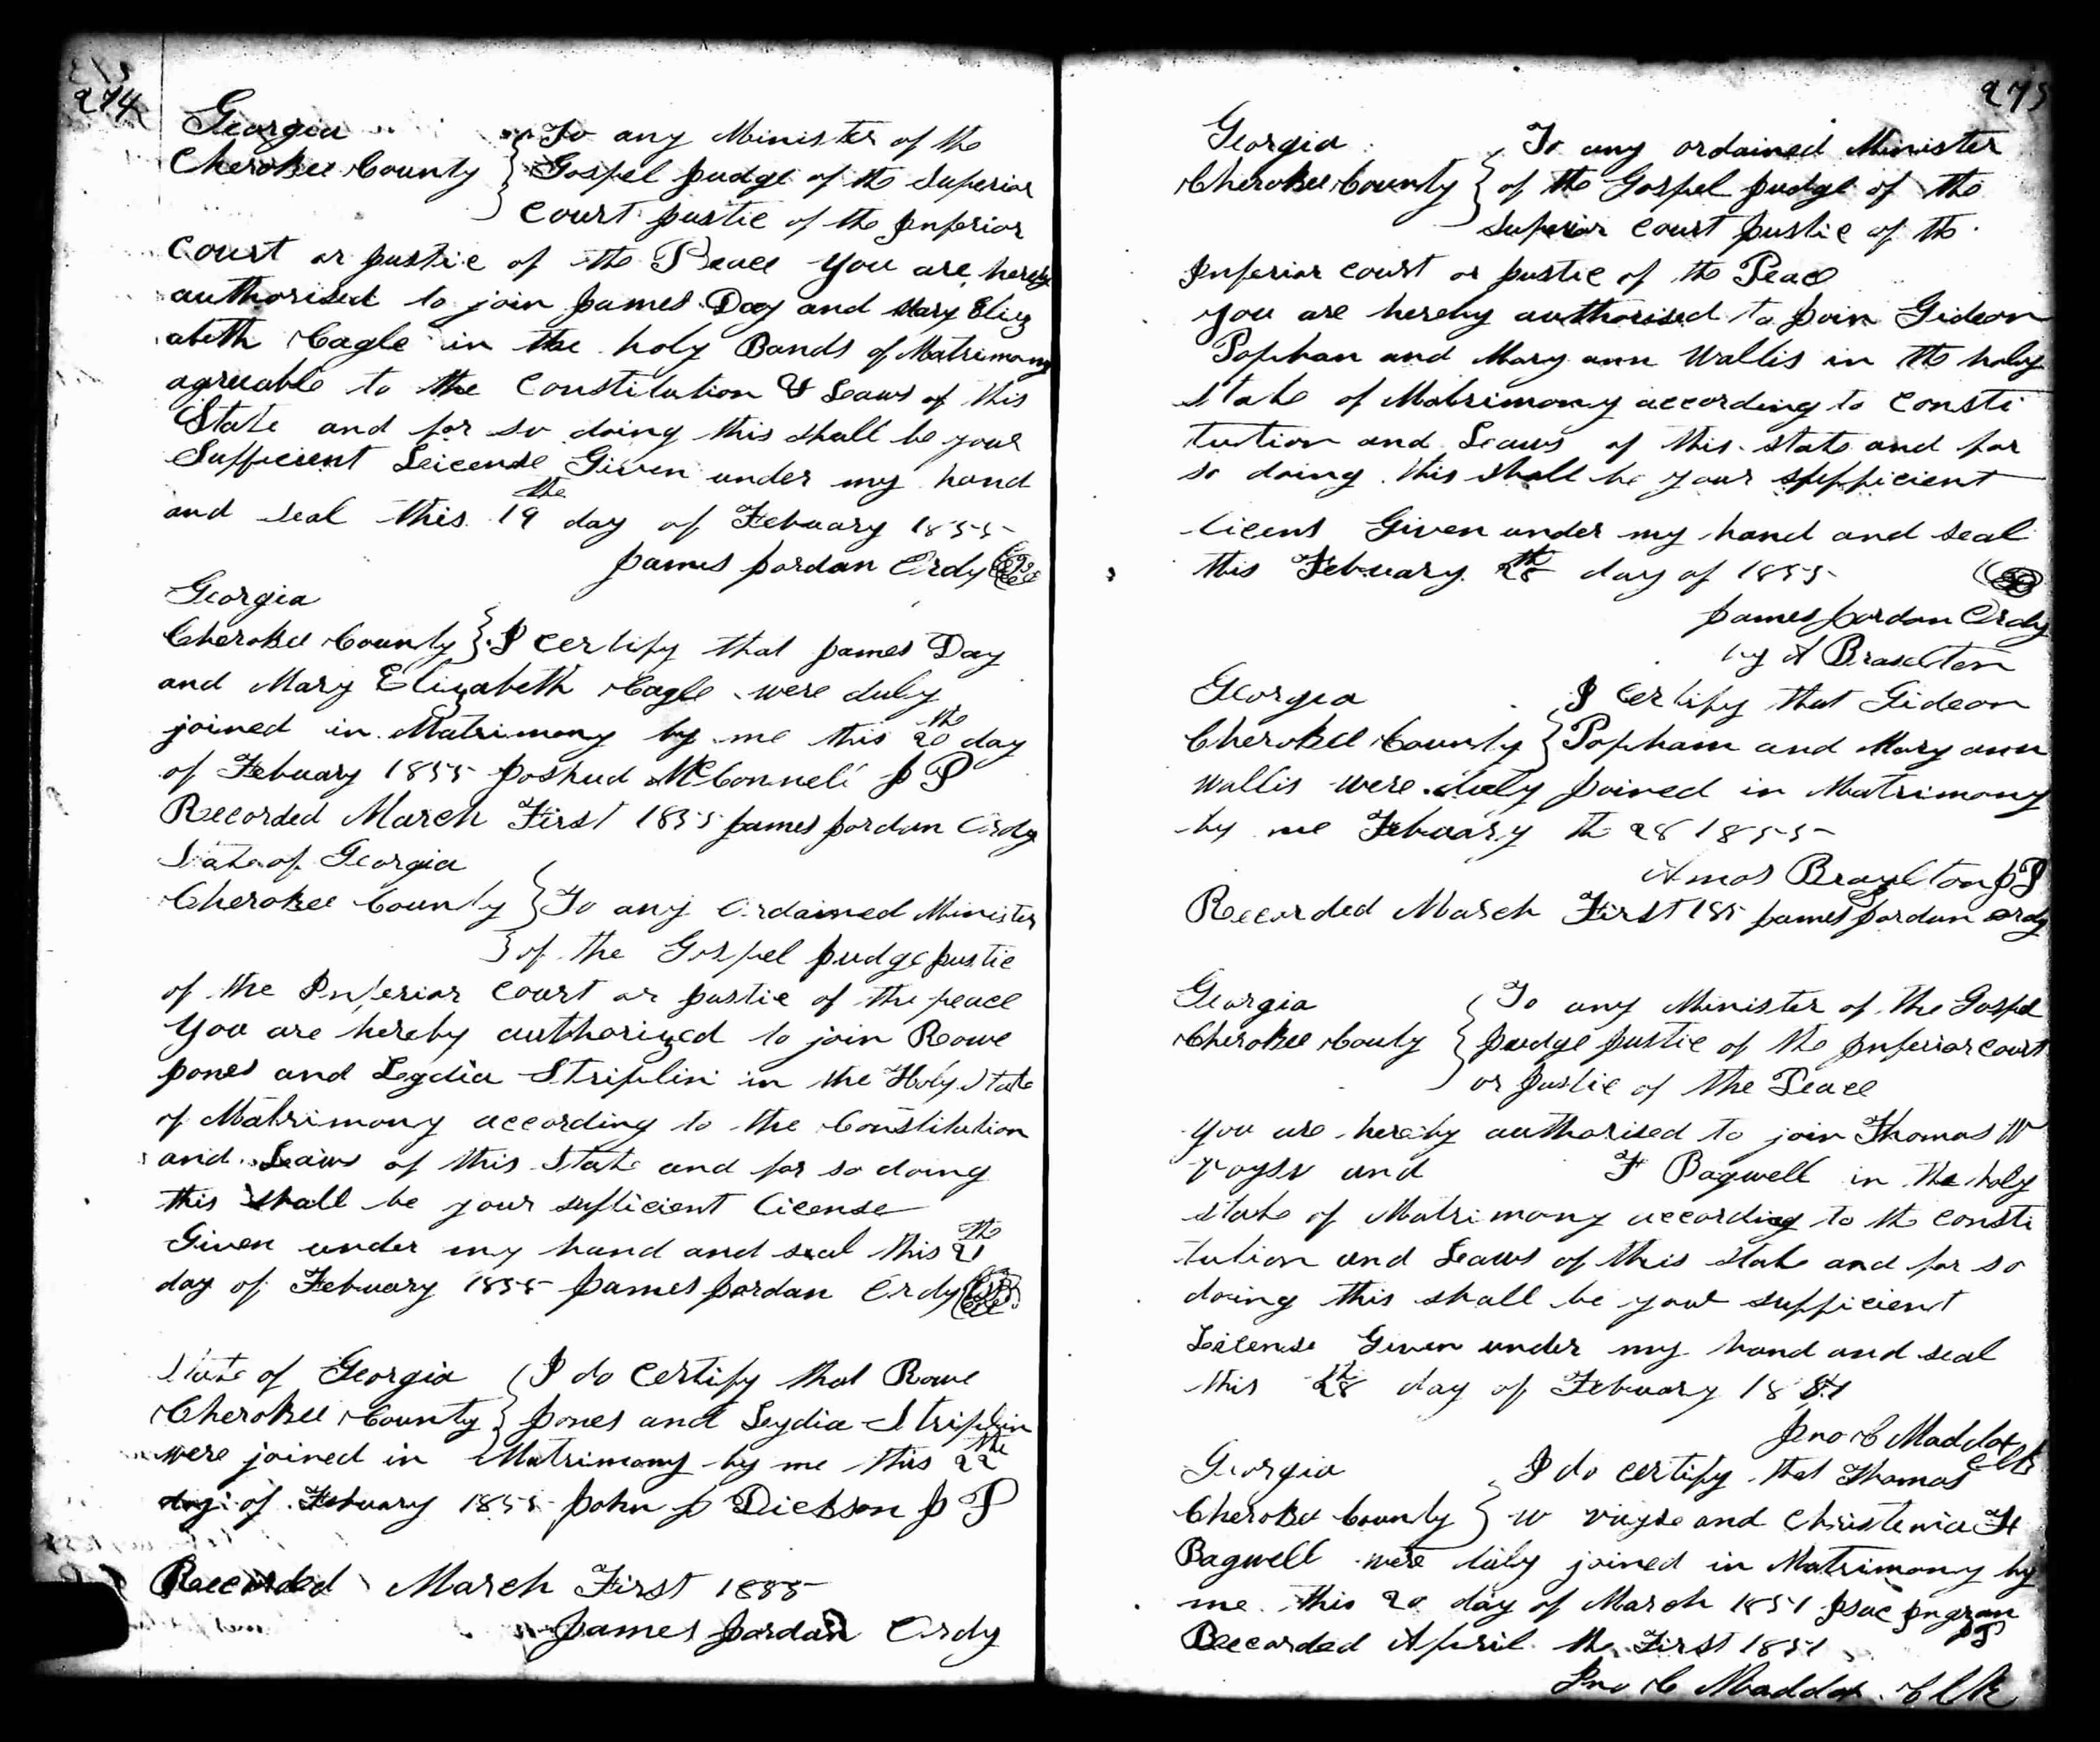 274
Georgia
Cherokee County
To any Minister of the
Gospel Judge of the Superior
Court Justic of the Inferior
Court or Justice of the Peace You are hereby
authorised to join James Day and Mary Eliz
abeth Cagle in the holy Bands of Matrimony
agreeable to the Constitution & Leaws of this
State and for so doing this shall be your
Sufficient Leicense Given under my hand
and seal this 19 the day of Febuary 1855
James Jordan Ordy
Georgia
Cherokee County I certify that James Day
and Mary Elizabeth Cagle were duly
joined in Matrimony by me this 20 the day
of Febuary 1855 Joshud McConnel J P
Recorded March First 1855 James Jordan Ordy
State of Georgia
Cherokee County To any Ordained Minister
of the Gospel Judge Justic
of the Inferior Court or Justic of the peace
You are hereby authorized to join Rowe
Jones and Leydia Striplin in the Holy State
of Matrimony according to the Constitution
and Laws of this State and for so doing
this shall be your sufficient License
Given under my hand and seal this 21 the
day of Febuary 1855 James Jordan Ordy
State of Georgia
Cherokee County
I do certify that Rowe
Jones and Leydia Striplin
were joined in Matrimony by me this 22 the
day of Febuary 1855 John J Dickson J P
Recorded March First 1855
James Jordan Ordy
275
Georgia
Cherokee County
To any ordained Minister
of the Gospel Judge of the
Superior Court Justic of the
Inferior court or Justic of the Peace
you are hereby authorised to Join Gideon
Pophan and Mary ann Wallis in the holy
state of Matrimony according to Consti
tution and Leaws of this state and for
so doing this shall be your sufficient
licens Given under my hand and seal
this Febuary 28 th day of 1855
James Jordan Ordy
by A Braselton
Georgia
Cherokee County
I certify that Gideon
Popham and Mary ann
Wallis were duly Joined in Matrimony
by me Febuary the 28 1855
Amos Brazelton J P
Recorded March First 185 James Jordan ordy
Georgia
Cherokee Couty
To any Minister of the Gospel
Judge Justic of the Inferior court
or Justic of the Peace
you are hereby authorised to join Thomas W
and F Bagwell in the holy
state of Matrimony according to the consti
tution and Leaws of this state and for so
doing this shall be your sufficient
Leicense Given under my hand and seal
this 28 th day of Febuary 1851
Jno C Maddox
Clk
Georgia
Cherokee County
I do certify that Thomas
W and F
Bagwell were duly joined in Matrimony by
me this 20 day of March 1851 Isac Ingram
J P
Recorded April the First 1851
Jno C Maddox Clk